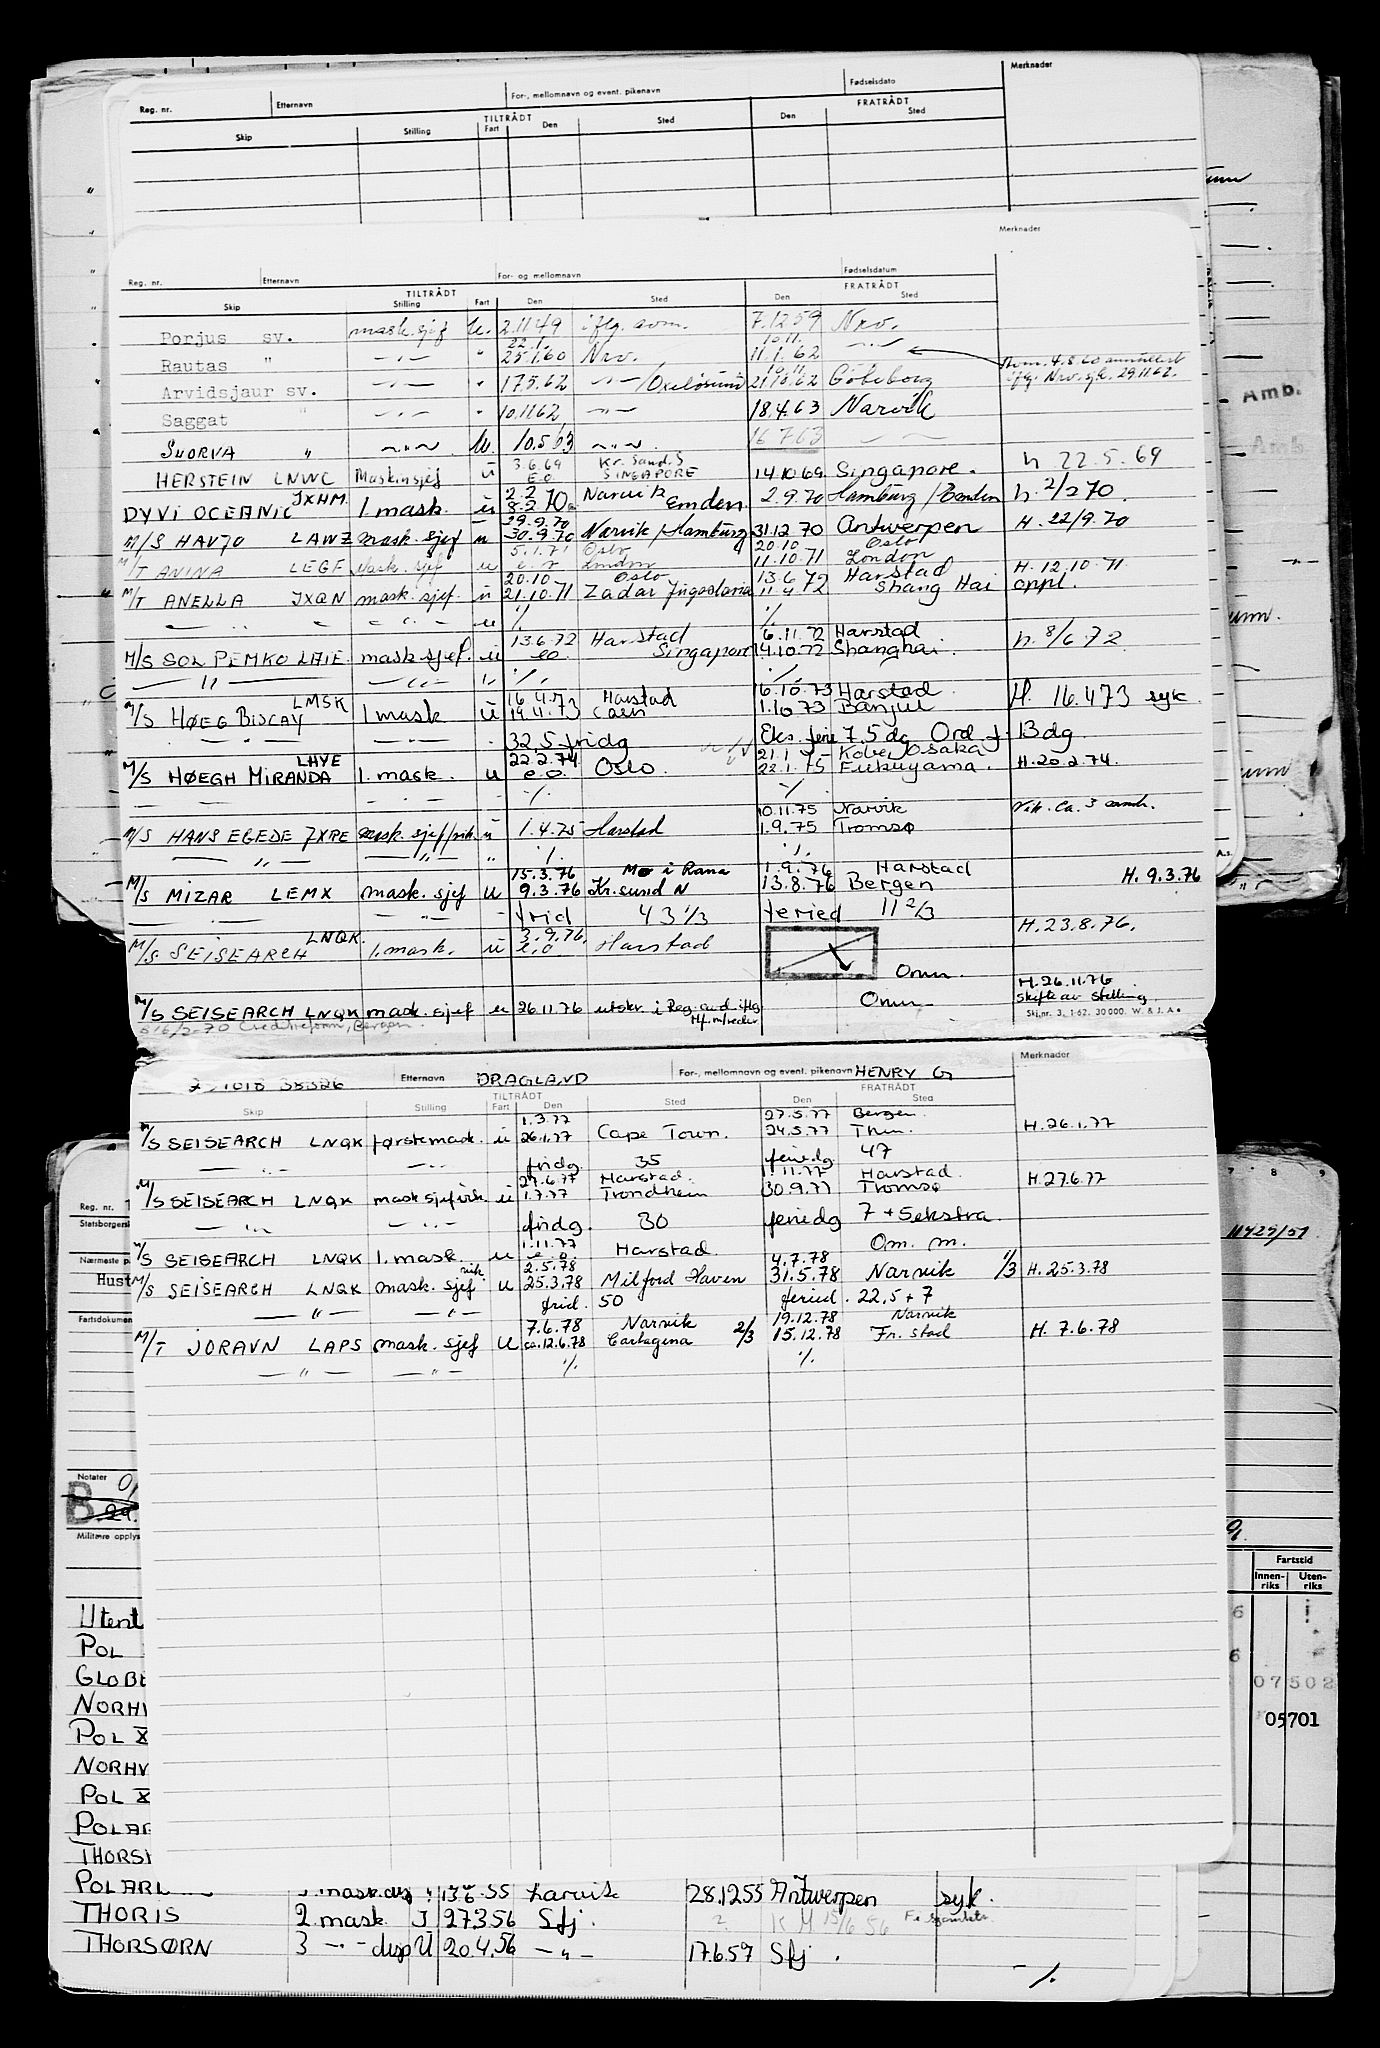 Reg. nr. Etternavn For-, mellomnavn og event. pikenavn Fødselsdato Merknader
TILTRÅDT FRATRÅDT
Skip Stilling Fart Den Sted Den Sted
Merknader
Reg. nr. Etternavn For- og mellomnavn Fødselsdatum
TILTRÅDT FRATRÅDT
Skip Stilling Fart Den Sted Den Sted
Porjus sv. mask.sjef U. 2.11 49 iflg. avm. 7.12 59 Nrv.
22.1. 10.11.
Rautas " —"— " 25.1.60 Nrv. 11.1.62 —"—
Avm. 4.8.60 annullert
iflg. Nrv. sjk. 29.11 62.
Arvidsjaur sv. —"— " 17.5.62 —"— /Oxelösund 21.10.62 Göteborg
Saggat " —"— " 10.11 62 —"— 18.4.63 Narvik
SUORVA " —"— U. 10.5.63 —"— 16 7 63 —"—
3.6.69 Kr. Sand. S
HERSTEIN LNWC Maskinsjef ü E.O SINGAPORE 14.10 69 Singapore. h 22.5.69
DYVI OCEANIC JXHM 1. mask. ü 2.2 8.2 70 Narvik Emden 2.9.70 Hamburg / Emden h. 2/2 70.
29.9.70
M/S HAVJO LAWZ mask. sjef u 30.9.70 Narvik/Hamburg 31.12 70 Antwerpen H. 22/9.70
5.1.71 Oslo 20.10 Oslo
M/T ANINA LEGF mask. sjef u e.o London 11.10.71 London H. 12.10.71
20.10 Oslo 13.6 72 Harstad
M/T ANELLA JXQN mask. sjef ü 21.10.71 Zadar Jugoslavia 11 6 72 Shang Hai oppl.
— " — " —"— u ·/. ·/.
13.6.72 Harstad 6.11.72 Harstad
M/S SOL PEMKO LAIE mask sjef. ü eo Singapore 14.10.72 Shanghai. h. 8/6 72.
— " — —"— " ·/. ·/.
16.4.73 Harstad 16.10.73 Harstad
M/S HØEG BISCAY LMSK 1 mask ü 19.4.73 Caen 1.10 73 Banjul H. 16.4 73 syk
32,5 fridg Eks. ferie 7,5 dg Ord. f. Bdg
22.2.74 21.1 75 Kobe/Osaka
M/S HØEGH MIRANDA LHYE 1. mask. u e.o. Oslo. 22.1.75 Fukuyama. H. 20.2.74.
— — —"— ·/. ·/.
10.11.75 Narvik Vik. ca. 3 mndr.
M/S HANS EGEDE JXRE mask. sjef/vik ü 1.4.75 Harstad 1.9.75 Tromsø
— " — —"— " ·/. ·/.
15.3.76 Mo i Rana 1.9.76 Harstad
M/S MIZAR LEMX mask. sjef u 9.3.76 Kr.sund N 13.8.76 Bergen H. 9.3.76
— — —"— - frid 43 1/3 feried 11 2/3
3.9.76.
M/S SEISEARCH LNQK 1. mask. ü e.o Harstad Omm. H. 23.8.76.
M/S SEISEARCH LNQK mask. sjef u 26.11.76 utskr. i Reg. and iflg Omm. H. 26.11.76
tlf.m/reder skifte av stilling
Kredittreform, Bergen. Skj.nr. 3. 1-62. 30 000. W. & J. A.s
Etternavn DRAGLAND For-, mellomnavn og event. pikenavn HENRY G Merknader
TILTRÅDT FRATRÅDT
Skip Stilling Fart Den Sted Den Sted
1.3.77 27.5.77 Bergen.
M/S SEISEARCH LNQK førstemask. ü 26.1.77 Cape Town. 24.5.77 Thm. H. 26.1.77
—"— —"— fridg. 35 feriedg. 47
27.6.77 Harstad. 1.11.77 Harstad.
M/S SEISEARCH LNQK mask sjefvik ü 1.7.77 Trondheim 30.9.77 Tromsø H. 27.6.77
—"— —"— fridg. 30 feriedg 7 + 5 ekstra.
1.11.77
M/S SEISEARCH LNQK 1. mask. u e.o. Harstad. Om. m.
2.5.78 4.7.78
M/S SEISEARCH LNQK mask. sjef vik u 25.3.78 Milford Haven 31.5.78 Narvik 1/3 H. 25.3.78
—"— —"— frid. 50 feried. 22,5 + 7
7.6.78 Narvik 19.12.78 Narvik
M/T JORAVN LAPS mask. sjef U ca. 12.6.78 Cartagena 2/3 15.12.78 Fr. stad H. 7.6.78
—"— —"— ·/. ·/.
Amb.
Amb.
Reg. nr.
Nærmeste p
Hust
Notater
B
7 8 9
11429/51
Fartstid
Innen- Uten-
riks riks
07502
05701
Utent
POL
GLOB
NORHV
POL X
NORHV
POL X
POLAR
THORS
POLARL 13 6 55 Larvik 28.12 55 Antwerpen syk.
THORIS 2 mask. J 27.3.56 Sfj. ? KM 15/6 56
THORSØRN 3 —"— disp U 20.4.56 —"— 17.6.57 Sfj.
·/.